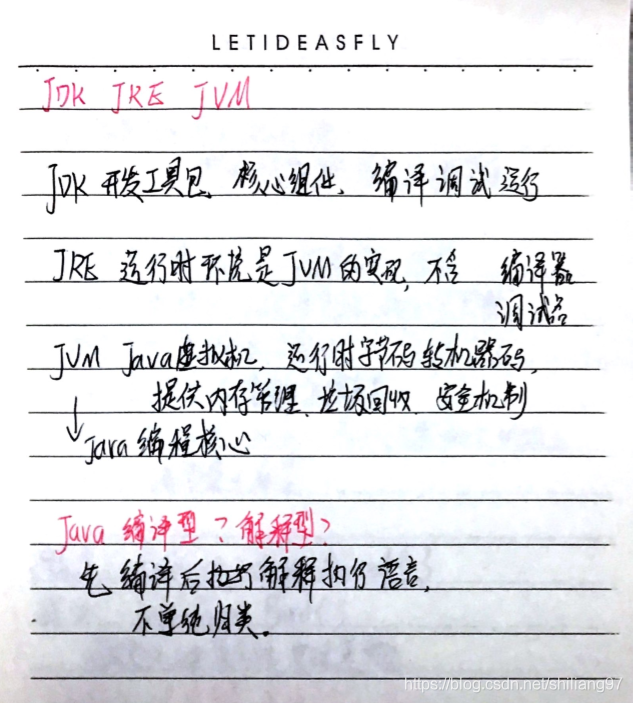 LETIDEASFLY
JDK JRE JVM
JDK 开发工具包、核心组件、编译调试运行
JRE 运行时环境是JVM的实现, 不含 编译器
调试器
JVM Java虚拟机, 运行时字节码转机器码,
提供内存管理、垃圾回收、安全机制
↓Java 编程核心
Java 编译型? 解释型?
先编译后 解释执行语言,
不单纯归类。
https://blog.csdn.net/shiliang97